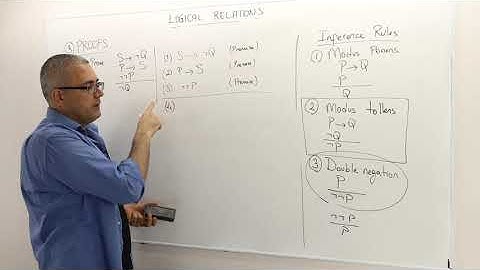 LOGICAL RELATIONS
③ PROOFS
Prove
S → ¬Q
P → S
¬¬P
¬Q
(1) S → ¬Q (Premise)
(2) P → S (Premise)
(3) ¬¬P (Premise)
(4)
Inference Rules
① Modus Ponens
P → Q
P
Q
② Modus tollens
P → Q
¬Q
¬P
③ Double negation
P
¬¬P
¬¬P
P